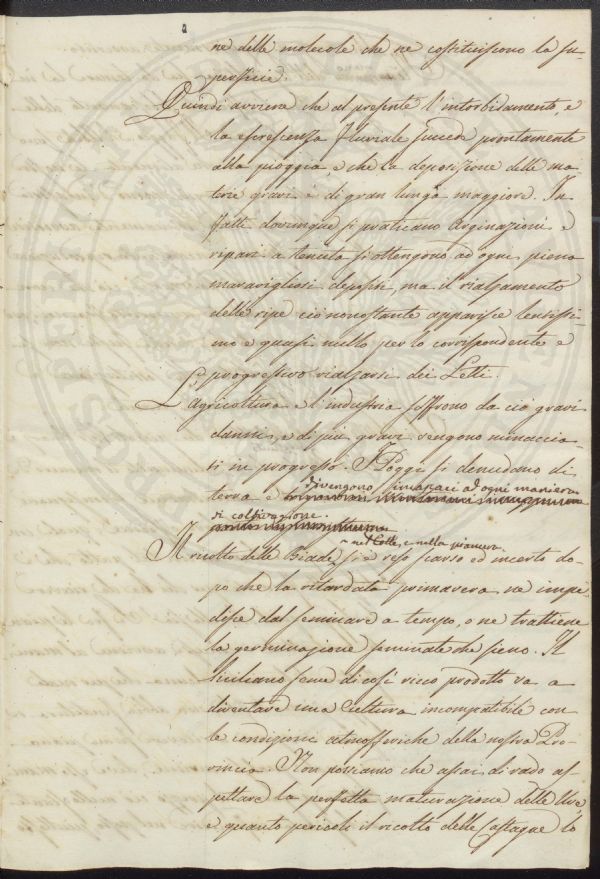 ne delle molecole che ne costituiscono la su-
perficie.
Quindi avviene che al presente l'intorbidamento, e
la escrescenza fluviale succede prontamente
alla pioggia, e che la deposizione delle ma-
terie gravi è di gran lunga maggiore. In-
fatti dovunque si praticano Arginazioni e
ripari a tenuta si ottengono ad ogni piena
maravigliosi depositi, ma il rialzamento
delle ripe ciò nonostante apparisce lentissi-
mo e quasi nullo per lo corrispondente e
progressivo rialzarsi dei Letti.
L'agricoltura e l'industria soffrono da ciò gravi
danni, e di più gravi vengono minaccia-
ti in progresso. I Poggi si denudano di
terra e divengono
ad ogni maniera
di coltivazione.
nel Colle, e nella pianura
Il ricolto delle Biade si è reso scarso ed incerto do-
po che la ritardata primavera ne impe-
disce dal seminare a tempo, o ne trattiene
la germinazione seminate che sieno. Il
Siciliano seme di così ricco prodotto va a
diventare una cultura incompatibile con
le condizioni atmosferiche della nostra Pro-
vincia. Non possiamo che assai di rado as-
pettare la perfetta maturazione delle Uve,
e quanto pericoli il ricolto delle Castagne lo